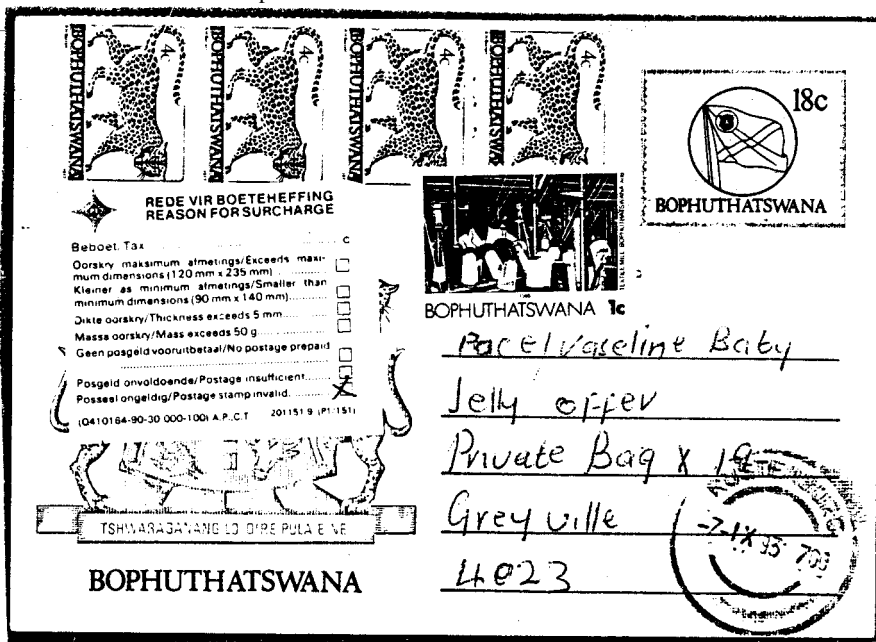 BOPHUTHATSWANA 4c
BOPHUTHATSWANA 4c
BOPHUTHATSWANA 4c
BOPHUTHATSWANA 4c
18c
BOPHUTHATSWANA
REDE VIR BOETEHEFFING
REASON FOR SURCHARGE
Beboet. Tax c
Oorskry maksimum afmetings/Exceeds maxi-
mum dimensions (120 mm x 235 mm)
Kleiner as minimum afmetings/Smaller than
minimum dimensions (90 mm x 140 mm)
Dikte oorskry/Thickness exceeds 5 mm
Massa oorskry/Mass exceeds 50 g
Geen posgeld vooruitbetaal/No postage prepaid
Posgeld onvoldoende/Postage insufficient
Posseël ongeldig/Postage stamp invalid
(Q410164-90-30 000-100) A.P.,C.T 201151 9 (P1/151)
BOPHUTHATSWANA 1c
Vaseline Baby
Jelly offer
Private Bag X 19
Greyville
4023
-7-IX 93
TSHWARAGANANG LO DIRE PULA E NE
BOPHUTHATSWANA